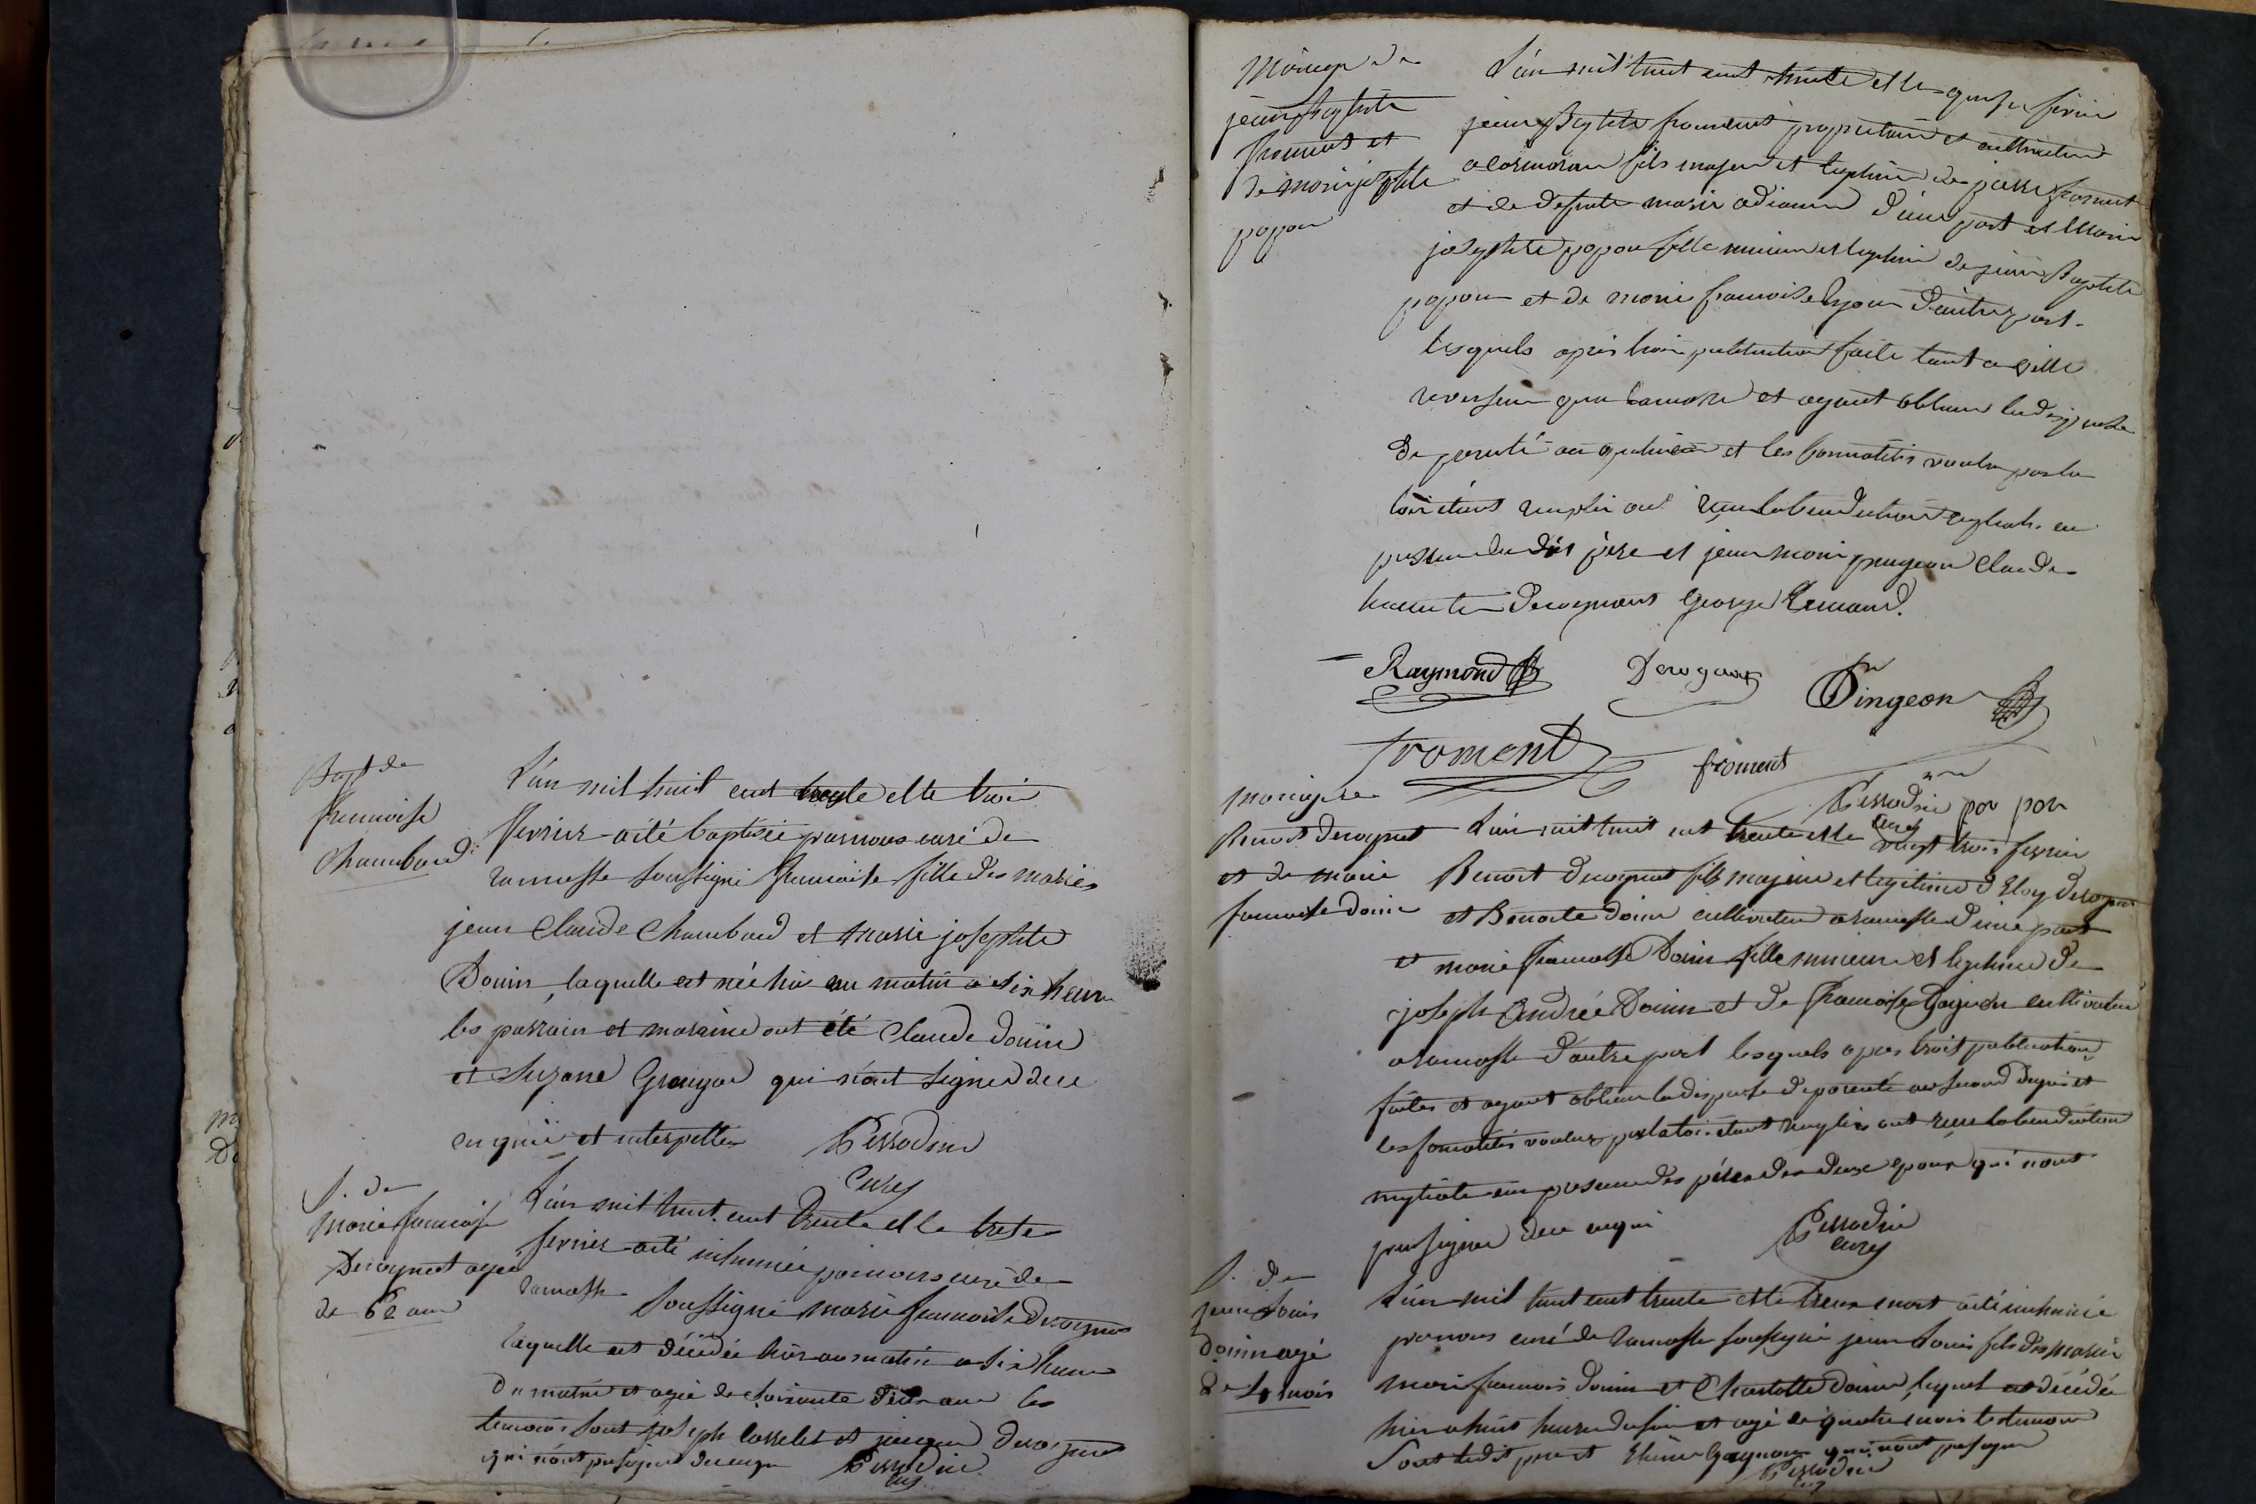 Bapt de
francoise
Chambard
L'an mil huit cent trente et le trois
fevrier a été baptisée par nous curé de
ramasse soussigné francoise fille des mariés
jean Claude Chambard et marie josephte
Douin, laquelle est née hier au matin a six heure
les parrain et maraine ont été Claude douin
et Suzane qui n'ont signer de ce
enquis et interpellés Perrodin
Curé
S. de
marie francoise
Derognat agée
de 62 ans
L'an mil huit cent trente et le trese
fevrier a été inhumée par nous curé de
ramasse soussigné marie francoise Derognat
laquelle est décédée hier au matin a six heure
du matin et agée de soixante deux ans les
temoins sont joseph Cosselet et jacque derognat
qui n'ont pu signer de ce enquis Perrodin
curé
Mariage de
jean Baptiste
froment et
de marie josephte
popon
L'an mil huit cent trente et le quinse fevrier
jean Baptiste froment proprietaire et cultivateur
a fils majeur et legitime de pierre froment
et de defunte marie d'une part et Marie
josephte popon fille mineure et legitime de jean Baptiste
popon et de marie francoise d'autre part
lesquels après trois publication faite tant a ville
reversure qu'a ramasse et ayant obtenu la dispense
de parenté au quatrieme et les formalités voulu par la
loi étant rempli ont reçu la benediction nuptiale en
presence du dit père et jean marie pingeon Claude
derognat George Remond.
Raymond Derognat Pingeon
froment froment
Perrodin
curé
mariage de
Benoit derognat
et de marie
francoise douin
L'an mil huit cent trente et le vingt trois fevrier
Benoit derognat fils majeur et legitime d'Eloy derognat
et Benoite douin cultivateur a ramasse d'une part
et marie francoise Douin fille mineure et legitime de
joseph Andrée Douin et de francoise Goignon cultivateur
a ramasse d'autre part lesquels apres trois publication
faites et ayant obtenu la dispense de parenté au second degré et
les formalités voulues par la loi étant remplies ont reçu la benediction
nuptiale en presence des pères des deux epoux qui n'ont
pu signer de ce enquis Perrodin
curé
S. de
jean Louis
douin agé
de 4 mois
L'an mil huit cent trente et le mars a été inhumé
par nous curé de ramasse soussigné jean Louis fils des mariés
marie francois douin et Charlotte douin, lequel est décédé
hier a huit heure du soir et agé de quatre mois les temoins
sont ledit pere et qui n'ont pu signer
Perrodin